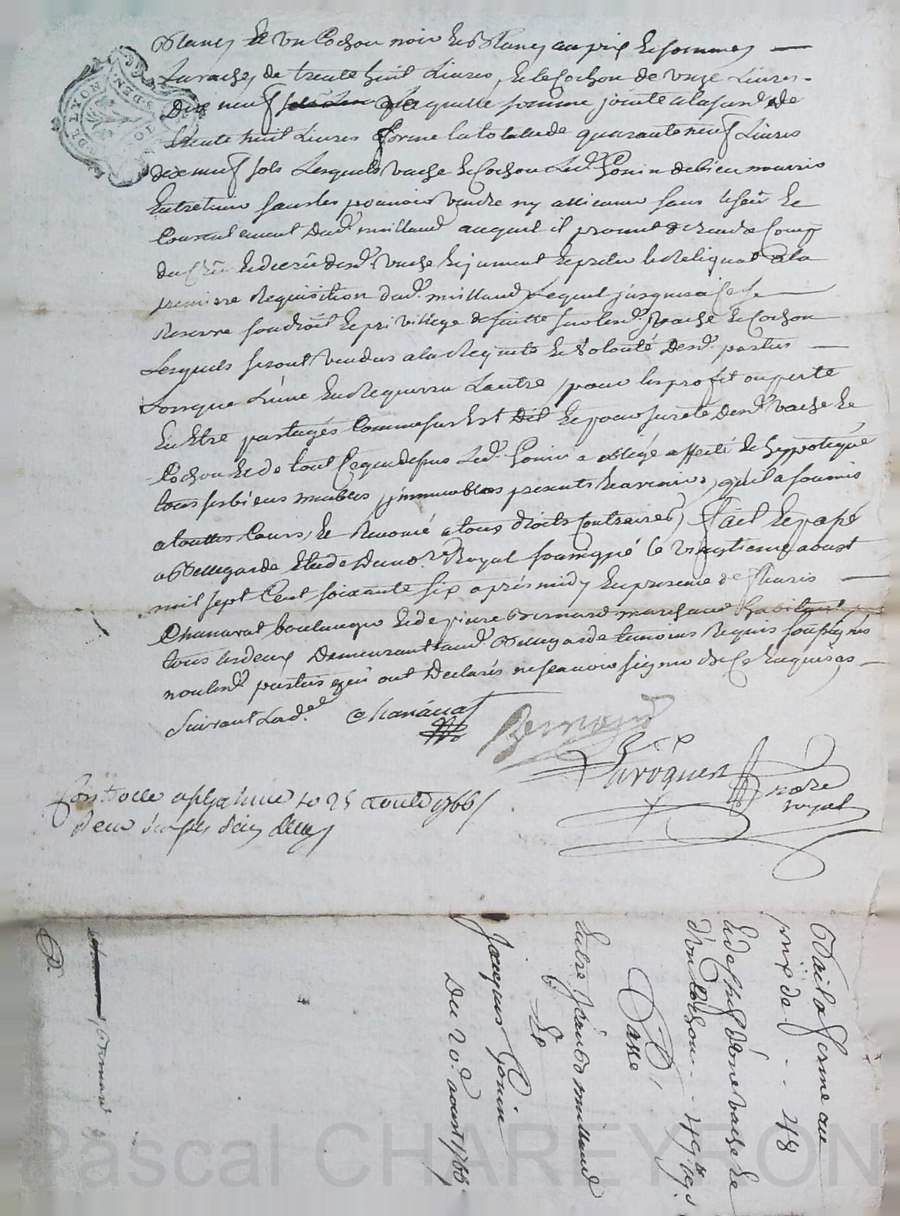 Blancq et un Cochon noir et Blancq au prix et sommes
La vache de trente huit Livres, et le Cochon de onze Livres
Dix neuf laquelle somme jointe a la susd. de
trente huit Livres forme la totale de quarante neuf Livres
dix neuf sols Lesquels vache et Cochon Led. Gonin de bien nourrir
Entretenir sans les pouvoir vendre ny alliener sans le sceu et
Consentement dud. milland auquel il promet de rendre Comp
du et du desd. vache et jument et le Reliquat a la
premiere Requisition dud. milland Lequel jusqua ce se
Reserve son droit et privillege de suitte sur lesd. vache et Cochon
Lesquels seront vendus a la Requete et volonté desd. parties
Lorsque L'une En Requerra L'autre, pour les profit ou perte
En Etre partagés Comme sus Est dit Et pour sureté desd. vache et
Cochon et de tout Ce que dessus Led. Gonin a obligé affecté et hyppotequé
tous ses biens meubles, immeubles presents et avenirs, qu'il a soumis
a touttes Cours, et Renoncé a tous droits Contraires, fait et passé
a Bellegarde Etude du no.re Royal soussigné le vingtieme aoust
mil sept Cent soixante six après midy En presence de
Chanavat boulanger et de pierre Bernard marchand habitant
tous les deux Demeurant aud. Bellegarde temoins Requis soussignés
non lesd. parties qui ont Declarés ne sçavoir signer de Ce Enquises
Suivant Lad.
Chanavat
Bernard
Laroque
no.re
royal
Controllé a le 25 aoust 1766
Bail a ferme au
prix de - - 48
et d'une vache et
d'un Cochon - - 49
Passé
Entre milland
Et
Jacques Gonin
Du 20.e aoust 1766.
LYON
Pascal CHAREYRON